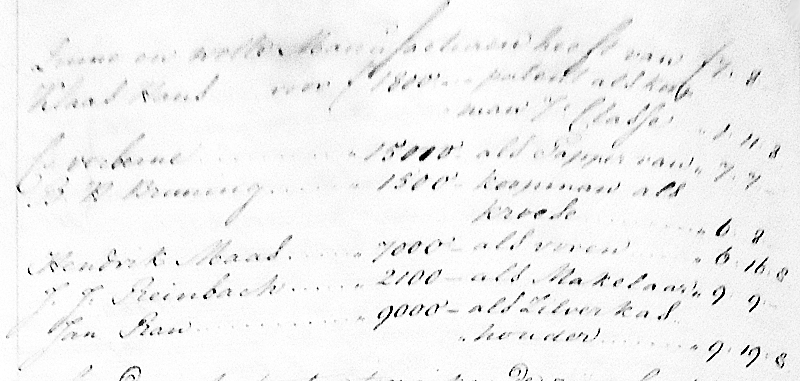 en wolle Manufacturen heeft van f 7. 8
Klaas Kans voor f 1800 - patent als koop
man 7e Classe „ 1. 11. 8
C. verberne „ 15000 - als Tapper van „ 7. 7 -
Bruning „ 1500 - koopman als
kroese „ 6. 8
Hendrik Maas „ 7000 - als voren „ 6. 16. 8
J. J. Reinbach „ 2100 - als Makelaar „ 9. 9 -
Jan Rau „ 9000 - als Zilver kas
houder „ 9. 19. 8